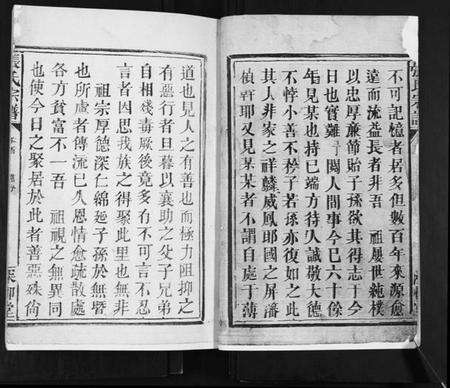 不可記憶者居多但數百年來源處
遠而流益長者非吾　祖屢世純樸
以忠厚廉節貽子孫欲其得志于今
日也實難哉閱人間事今巳六十餘
年見某也持巳端方待人誠敬大德
不悖小善不矜子若孫亦復如之此
其人非家之祥麟威鳳耶國之屏藩
楨幹耶又見某某者不謂自處于薄
道也見人之有善也而極力阻抑之
有惡行者旦暮以襄助之父子兄弟
自相殘毒厥後竟多有不可言不忍
言者因思我族之得聚此里也無非
祖宗厚德深仁綿延子孫於無暨
也所慮者傳流巳久恩情愈疏散處
各方貧富不一吾　祖視之無異同
也使今日之聚居於此者善惡殊尚
張氏宗譜